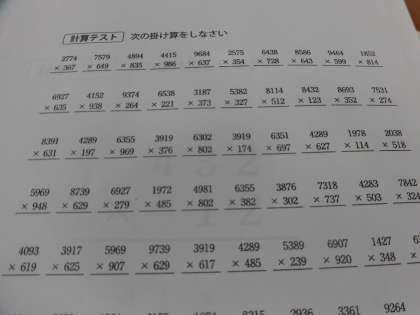 計算テスト 次の掛け算をしなさい
2774 7579 4894 4415 9684 2575 6438 8586 9464 1852
× 367 × 649 × 835 × 986 × 637 × 354 × 728 × 643 × 599 × 814
6927 4152 9374 6538 3187 5382 8114 8432 8693 7531
× 635 × 938 × 264 × 221 × 373 × 327 × 512 × 123 × 352 × 274
8391 4289 6355 3919 6302 3919 6351 4289 1978 2038
× 631 × 197 × 969 × 376 × 802 × 174 × 697 × 627 × 114 × 518
5969 8739 6927 1972 4981 6355 3876 7318 4283 7842
× 948 × 629 × 279 × 485 × 802 × 382 × 302 × 737 × 503 × 324
4093 3917 5969 9739 3919 4289 5389 6907 1427
× 619 × 625 × 907 × 629 × 617 × 485 × 239 × 920 × 348 ×
8315 2936 3361 9264